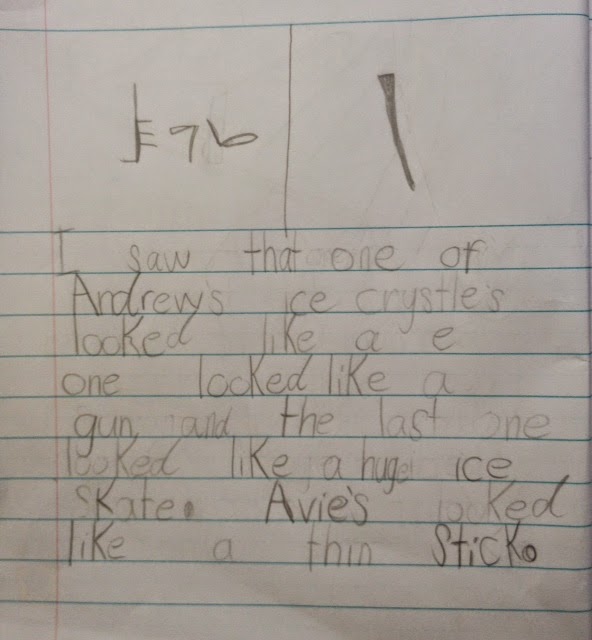 I saw that one of
Andrew's ice crystle's
looked like a e
one looked like a
gun and the last one
looked like a huge ice
skate. Avie's looked
like a thin stick.